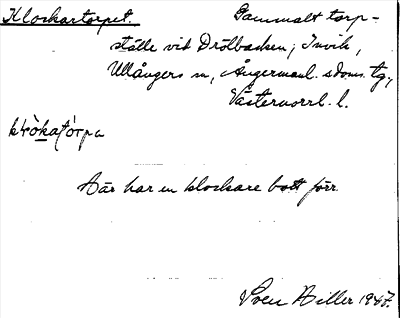 Klockartorpet. Gammalt torp-
ställe vid Drölbacken, Invik,
Ullångers sn, Ångermanl. s doms. tg.,
Västernorrl. l.
klò̀katórpa
Här har en klockare bott förr.
Sven Hiller 1947.